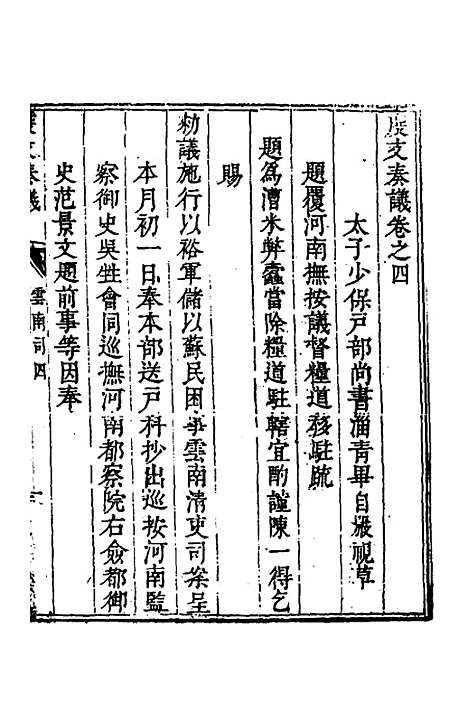 度支奏議卷之四
太子少保戶部尚書淄青畢自嚴視草
題覆河南撫按議督糧道移駐疏
題為漕米弊蠹當除糧道駐轄宜酌謹陳一得乞
賜
勑議施行以裕軍儲以蘇民困事雲南清吏司案呈
本月初一日奉本部送戶科抄出巡按河南監
察御史吳甡會同巡撫河南都察院右僉都御
史范景文題前事等因奉
度支奏議
雲南司四